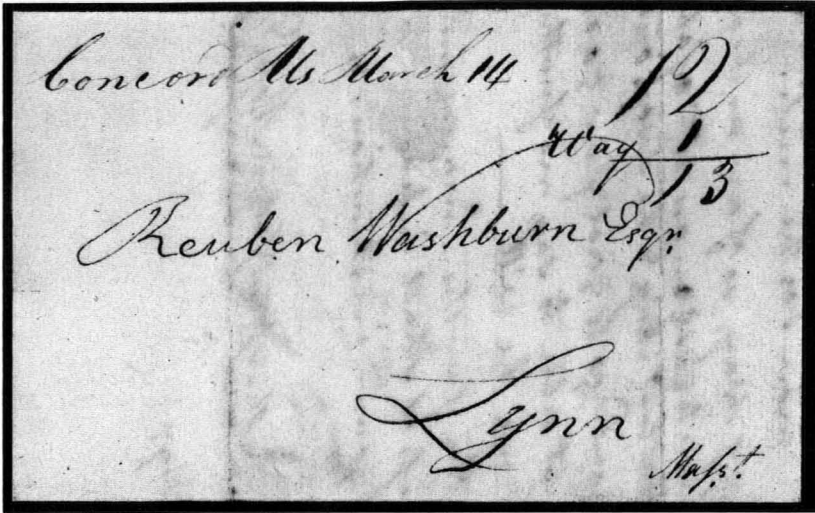 Concord Ms March 14
12
Way 1
13
Reuben Washburn Esqr.
Lynn
Masst.